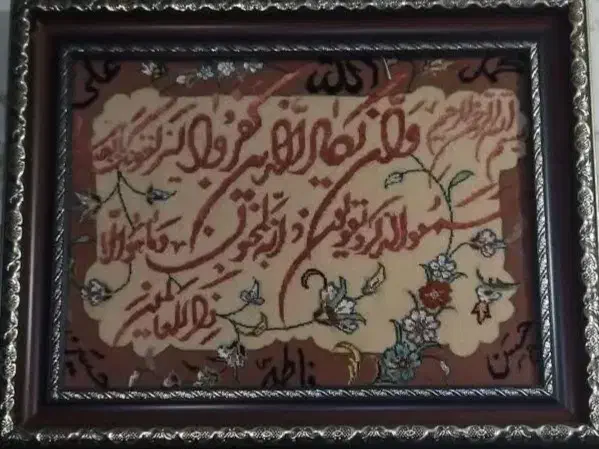 محمد الله علی
بسم الله الرحمن الرحیم
وان یکاد الذین کفروا لیزلقونک
سمعوا الذکر و یقولون انه لمجنون وما هو الا
ذکر للعالمین
حسن فاطمه حسین